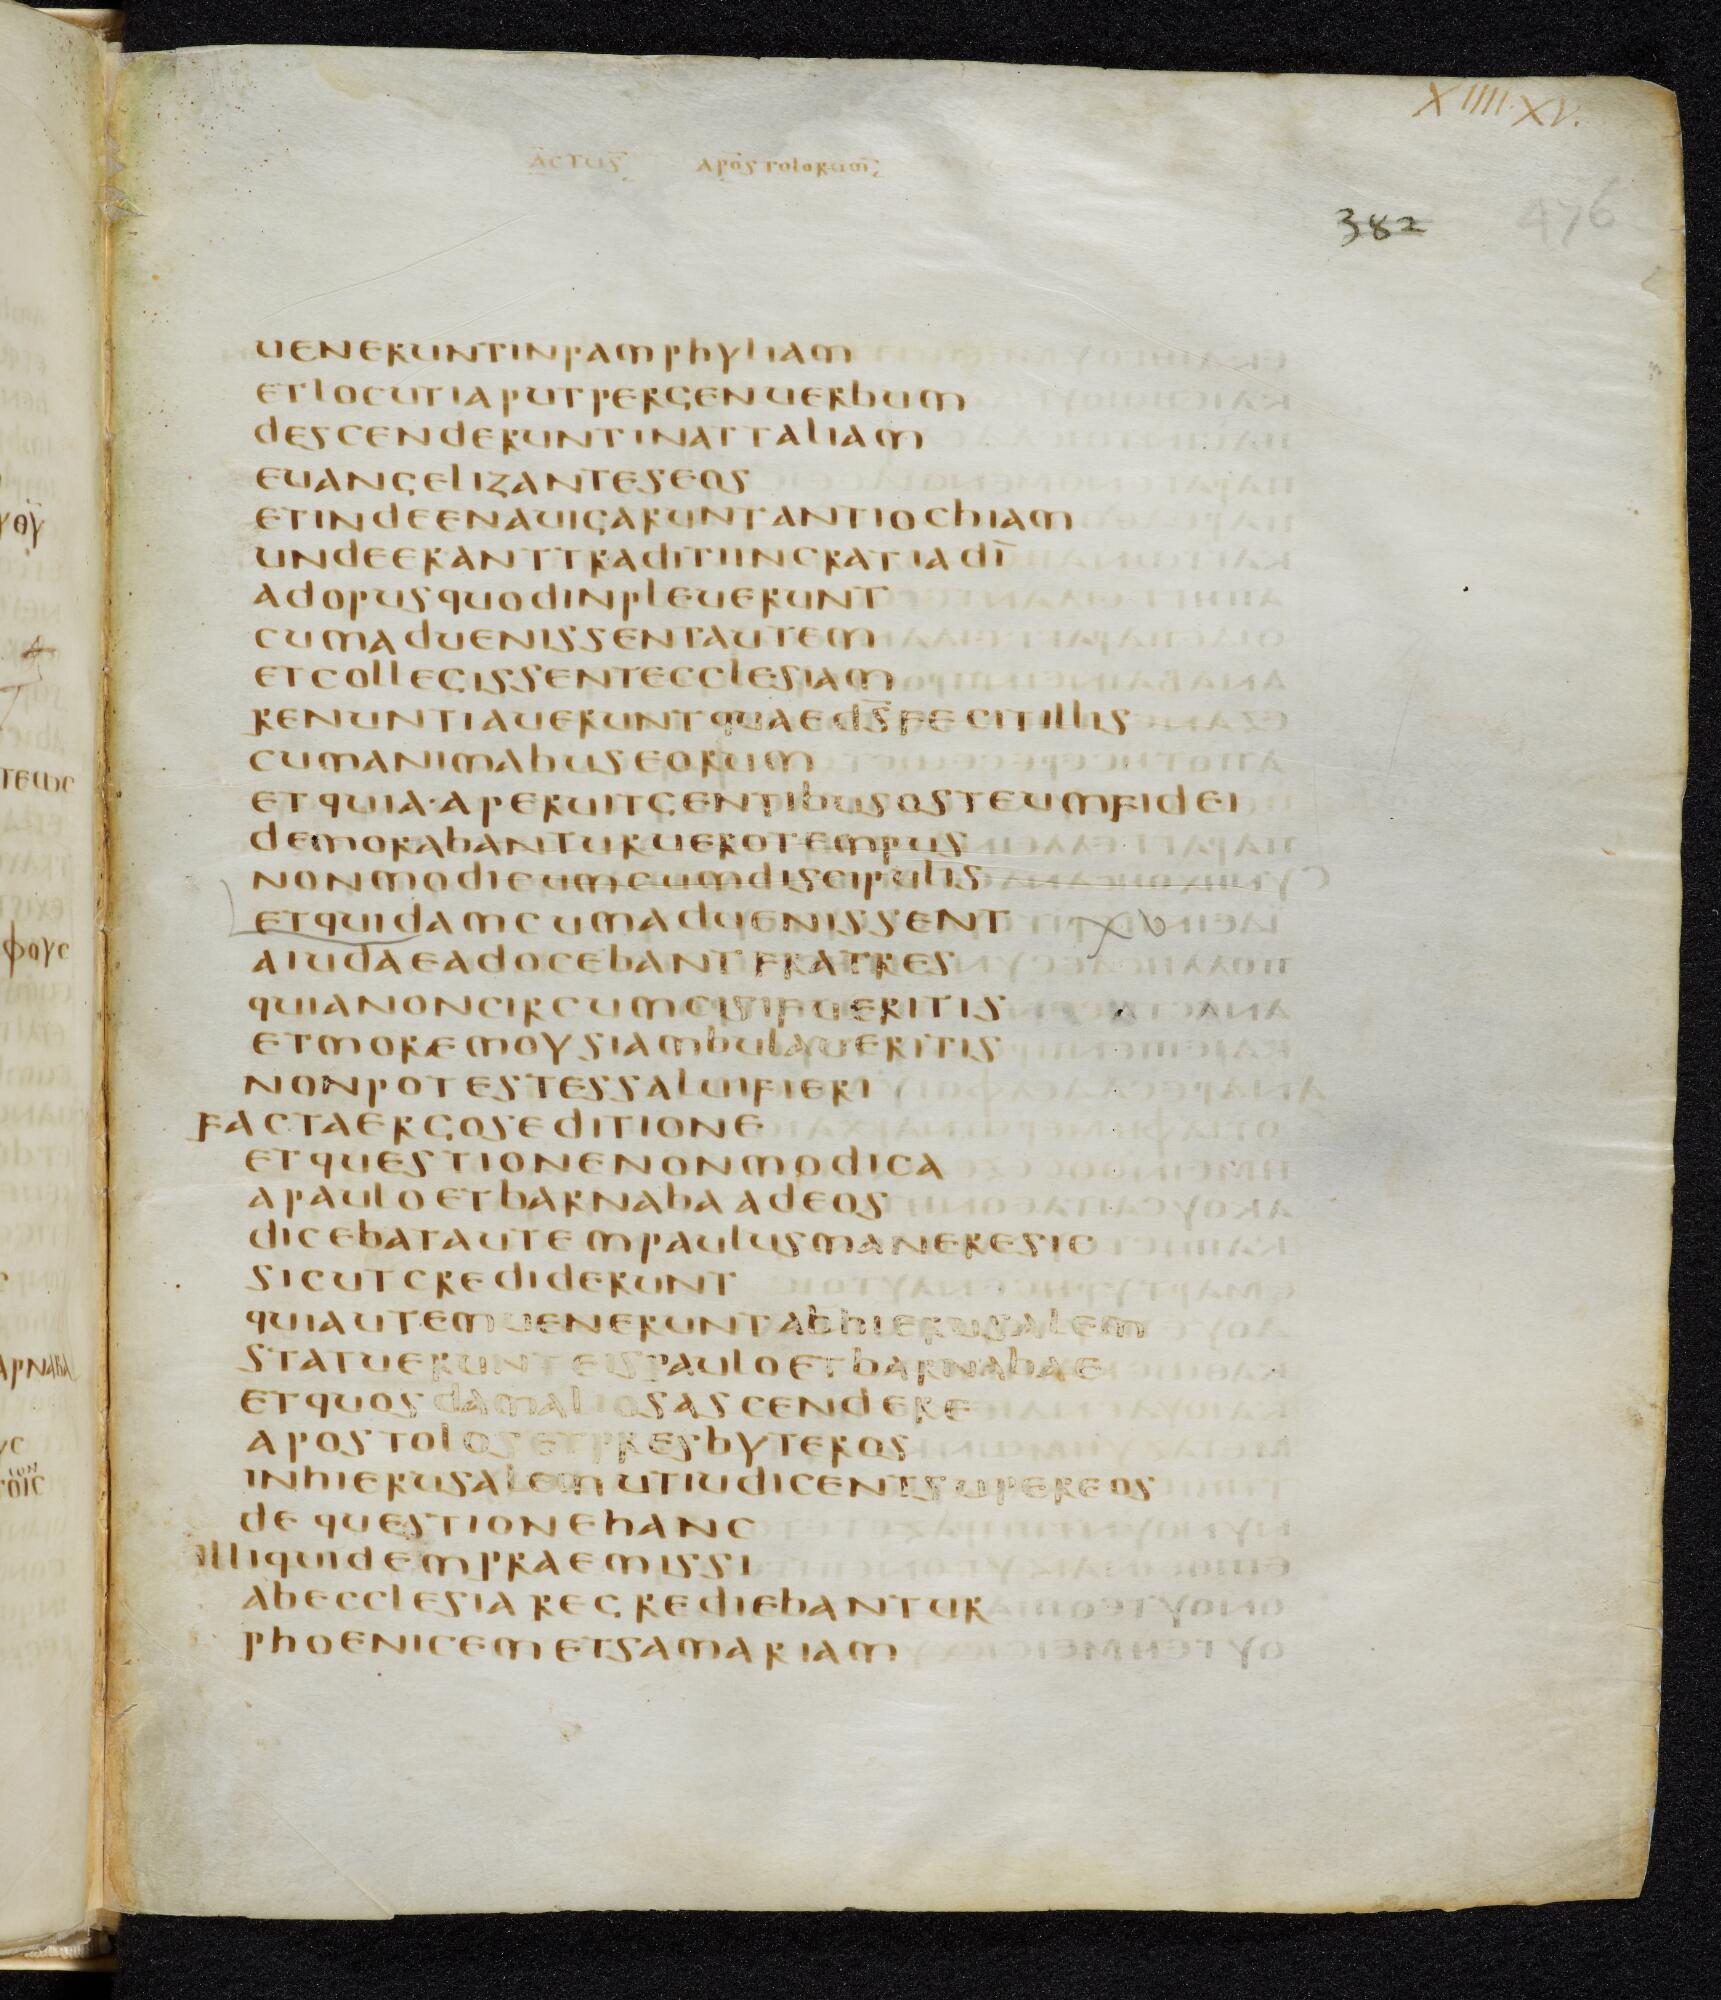 XIIII·XV.
ACTUS APOSTOLORUM
382 476
UENERUNTINPAMPHYLIAM
ETLOCUTIAPUTPERGENUERBUM
DESCENDERUNTINATTALIAM
EUANGELIZANTESEOS
ETINDEENAUIGARUNTANTIOCHIAM
UNDEERANTTRADITIINGRATIADI̅
ADOPUSQUODINPLEUERUNT
CUMADUENISSENTAUTEM
ETCOLLEGISSENTECCLESIAM
RENUNTIAUERUNTQUAED̅S̅FECITILLIS
CUMANIMABUSEORUM
ETQUIA·APERUITGENTIBUSOSTEUMFIDEI
DEMORABANTURUEROTEMPUS
NONMODICUMCUMDISCIPULIS
ETQUIDAMCUMADUENISSENT XV
AIUDAEADOCEBANTFRATRES
QUIANONCIRCUMCISIFUERITIS
ETMOREMOYSIAMBULAUERITIS
NONPOTESTESSALUIFIERI
FACTAERGOSEDITIONE
ETQUESTIONENONMODICA
APAULOETBARNABAADEOS
DICEBATAUTEMPAULUSMANERESIC
SICUTCREDIDERUNT
QUIAUTEMUENERUNTABHIERUSALEM
STATUERUNTEISPAULOETBARNABAE
ETQUOSDAMALIOSASCENDERE
APOSTOLOSETPRESBYTEROS
INHIERUSALEMUTIUDICENTSUPEREOS
DEQUESTIONEHANC
ILLIQUIDEMPRAEMISSI
ABECCLESIAREGREDIEBANTUR
PHOENICEMETSAMARIAM